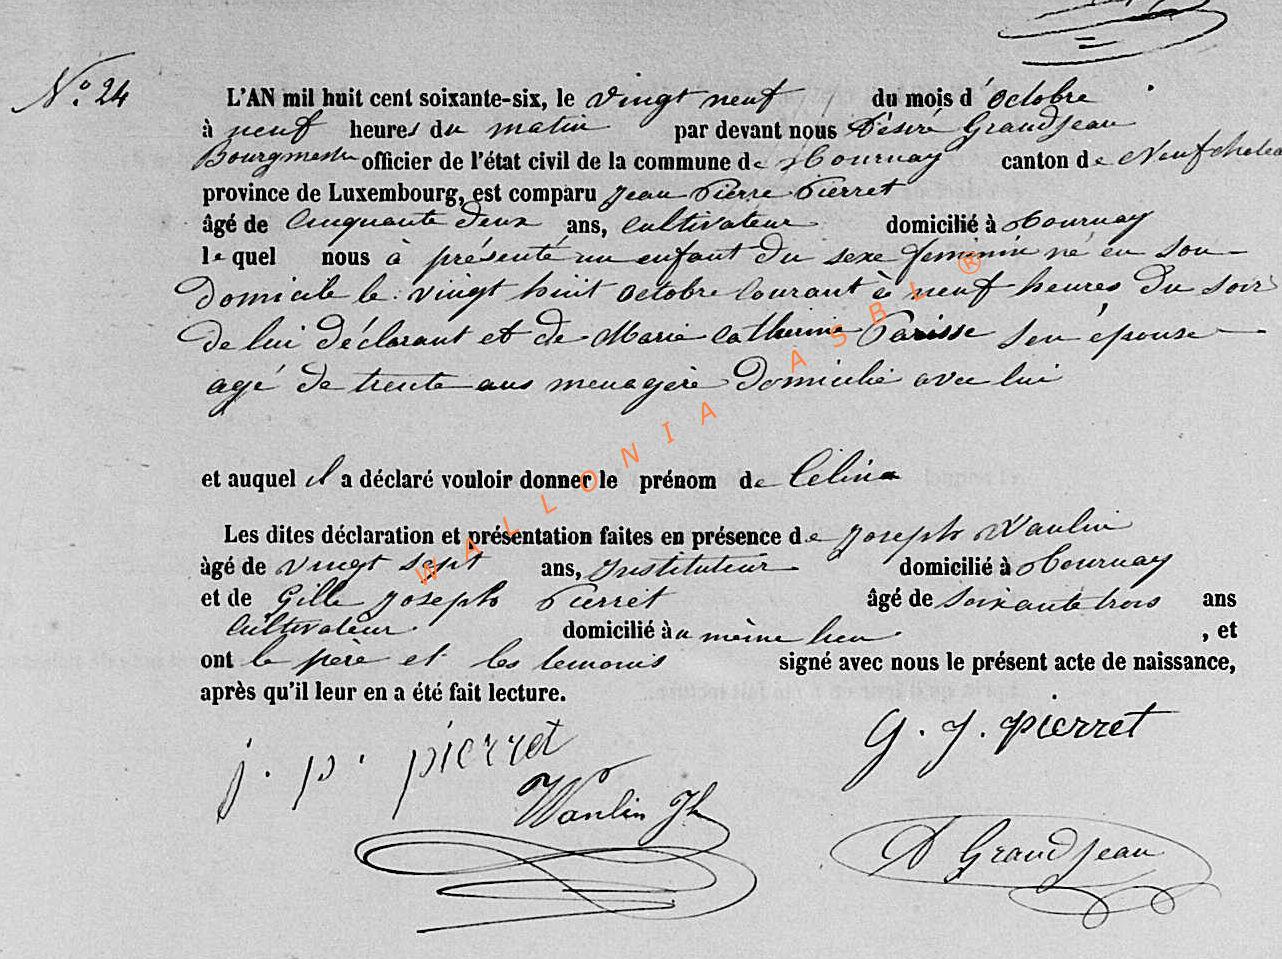 N°. 24
L'AN mil huit cent soixante-six, le vingt neuf du mois d'octobre
à neuf heures du matin par devant nous Désiré Grandjean
Bourgmestre officier de l'état civil de la commune de Tournay canton de Neufchatea
province de Luxembourg, est comparu Jean Pierre Pierret
âgé de cinquante deux ans, cultivateur domicilié à Tournay
lequel nous à présenté un enfant du sexe feminin né en son
domicile le vingt huit octobre courant à neuf heures du soir
de lui déclarant et de Marie Catherine Parisse son épouse
agé de trente ans menagère domicilié avec lui
et auquel il a déclaré vouloir donner le prénom de Célina
Les dites déclaration et présentation faites en présence de Joseph Wanlin
âgé de vingt sept ans, instituteur domicilié à Tournay
et de Gille Joseph Pierret âgé de soixante trois ans
cultivateur domicilié à même lieu , et
ont le père et les temoins signé avec nous le présent acte de naissance,
après qu'il leur en a été fait lecture.
j. p. pierret
G. J. pierret
Wanlin Jh
D Grandjean
WALLONIA ASBL ®